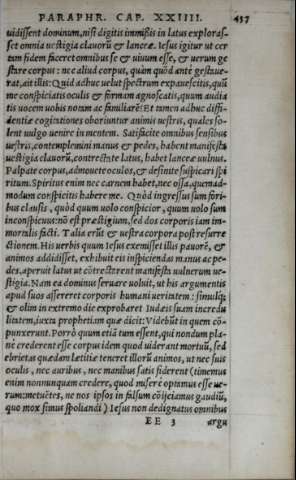 PARAPHR. CAP. XXIIII. 437
uidissent dominum, nisi digitis immissis in latus explorassent
set omnia uestigia clauorũ & lanceæ. Iesus igitur ut cer
tam fidem faceret omnibus se & uiuum esse, & uerum ge
stare corpus: nec aliud corpus, quàm quòd ante gestaue-
rat, ait illis: Quid adhuc uelut spectrum expauescitis, quũ
me conspiciatis oculis & formam agnoscatis, quum audia
tis uocem uobis notam ac familiarẽ? Et tamen adhuc diffi-
dentiæ cogitationes oboriuntur animis uestris, quales so-
lent uulgo uenire in mentem. Satisfacite omnibus sensibus
uestris, contemplemini manus & pedes, habent manifesta
uestigia clauorũ, contrectate latus, habet lanceæ uulnus.
Palpate corpus, admouete oculos, & desinite suspicari spi
ritum. Spiritus enim nec carnem habet, nec ossa, quemad-
modum conspicitis habere me. Quòd ingressus sum fori-
bus clausis, quòd quum uolo conspicior, quum uolo sum
inconspicuus: nõ est præstigium, sed dos corporis iam im-
mortalis facti. Talia erũt & uestra corpora post resurre
ctionem. His uerbis quum Iesus exemisset illis pauorẽ, &
animos addidisset, exhibuit eis inspiciendas manus ac pe-
des, aperuit latus ut cõtrectarent manifesta uulnerum ue-
stigia. Nam ea dominus seruare uoluit, ut his argumentis
apud suos assereret corporis humani ueritatem: simulq́;
& olim in extremo die exprobaret Iudæis suam incredu
litatem, iuxta prophetiam quæ dicit: Videbũt in quem cõ-
punxerunt. Porrò quum etiã tum essent, qui nondum pla-
nè crederent esse corpus idem quod uiderant mortuũ, sed
ebrietas quædam lætitiæ teneret illorũ animos, ut nec suis
oculis, nec auribus, nec manibus satis fiderent (timemus
enim nonnunquam credere, quod miserè optamus esse ue-
rum: metuẽtes, ne nos ipsos in falsum cõijciamus gaudiũ,
quo mox simus spoliandi) Iesus non dedignatus omnibus
EE 3 argu